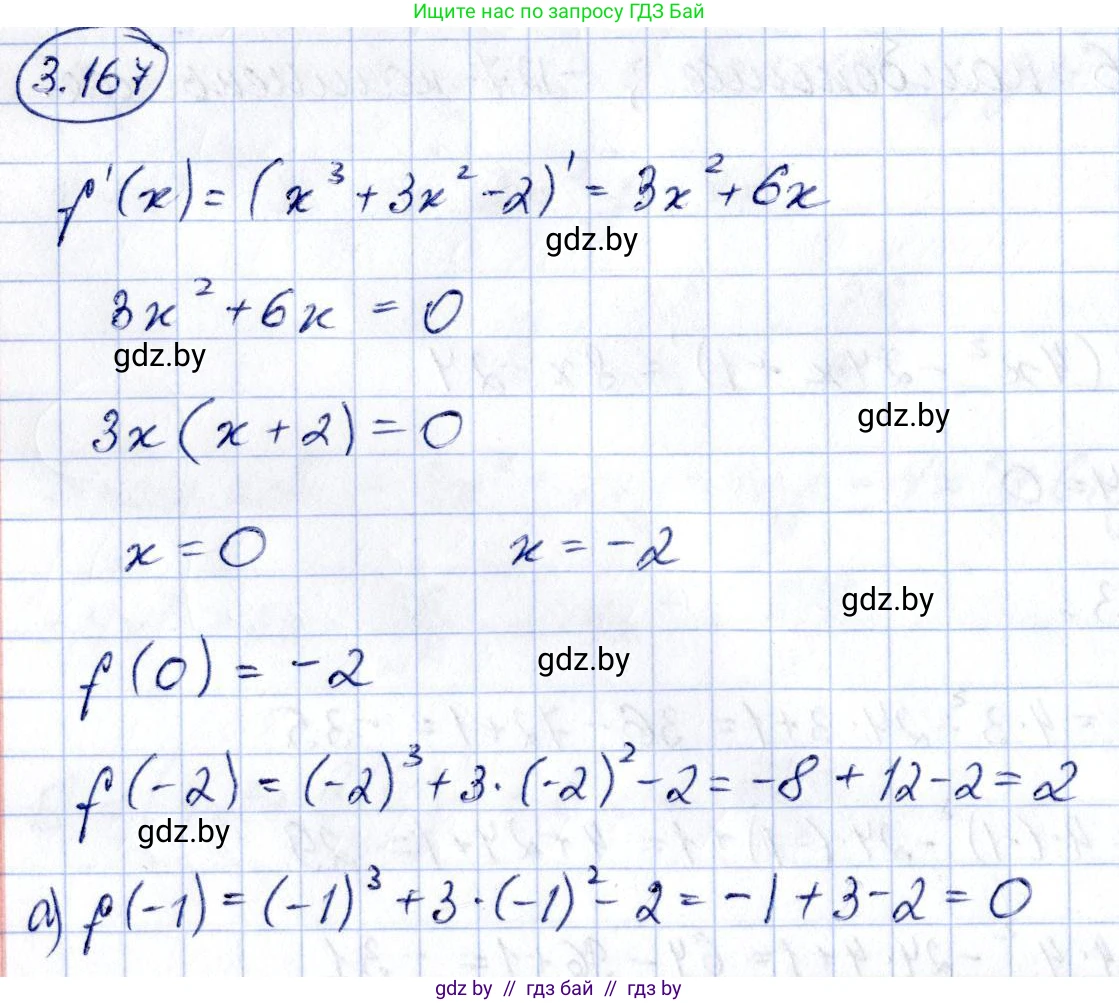 Ищите нас по запросу ГДЗ Бай
3.167
f'(x) = (x³ + 3x² - 2)' = 3x² + 6x
gdz.by
3x² + 6x = 0
gdz.by
gdz.by
3x(x + 2) = 0
x = 0 x = -2
gdz.by
gdz.by
f(0) = -2
f(-2) = (-2)³ + 3·(-2)² - 2 = -8 + 12 - 2 = 2
gdz.by
а) f(-1) = (-1)³ + 3·(-1)² - 2 = -1 + 3 - 2 = 0
gdz.by // гдз бай // гдз by